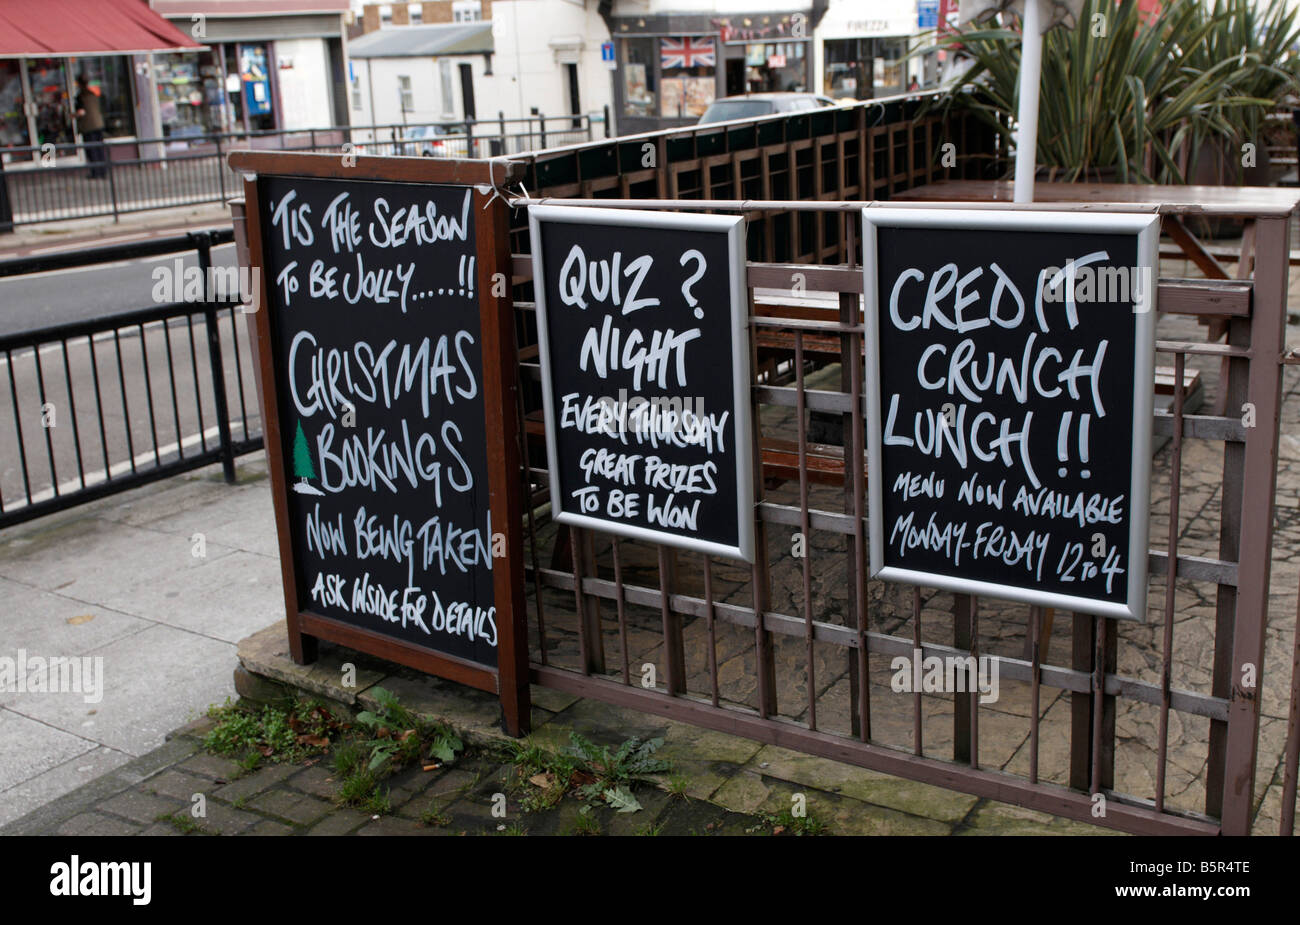 'TIS THE SEASON
TO BE JOLLY.....!!
CHRISTMAS
BOOKINGS
NOW BEING TAKEN
ASK INSIDE FOR DETAILS
QUIZ ?
NIGHT
EVERY THURSDAY
GREAT PRIZES
TO BE WON
CREDIT
CRUNCH
LUNCH !!
MENU NOW AVAILABLE
MONDAY-FRIDAY 12 TO 4
FIREZZA
alamy
a
a
a
alamy
Image ID: B5R4TE
www.alamy.com